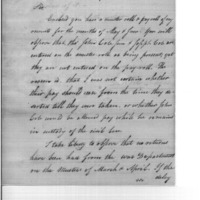 Sir
Enclosed you have a muster roll & payroll of my
command for the months of May & June. You will
observe that tho' John Cole Jun & Joseph Cole are
entered on the muster rolls as being present yet
they are not entered on the pay roll. The
reason is that I was not certain whether
their pay should commence from the time they
inlisted till they were taken, or whether John
Cole would be allowed pay while he remained
in custody of the civil law.
I take liberty to observe that no returns
have been had from the War Department
on the Muster of March & April. If the